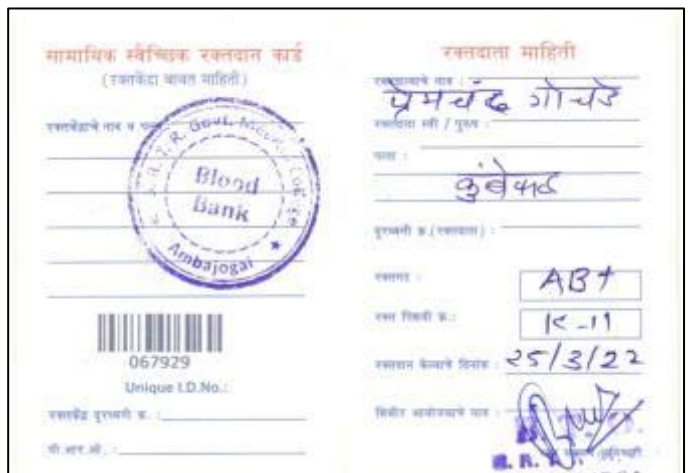 सामायिक स्वैच्छिक रक्तदान कार्ड
(रक्तकेंद्रा बाबत माहिती)
रक्तकेंद्राचे नाव व
S. R. T. R. Govt. Medical College
Blood
Bank
Ambajogai ★
067929
Unique I.D.No.:
रक्तकेंद्र दुरध्वनी क्र. :
पी.आर.ओ. :
रक्तदाता माहिती
रक्तदात्याचे नाव :
प्रेमचंद
रक्तदाता स्त्री / पुरुष :
पत्ता :
दुरध्वनी क्र.(रक्तदाता) :
रक्तगट :
AB+
रक्त पिशवी क्र.:
K-11
रक्तदान केल्याचे दिनांक :
25/3/22
शिबीर आयोजकाचे नाव :